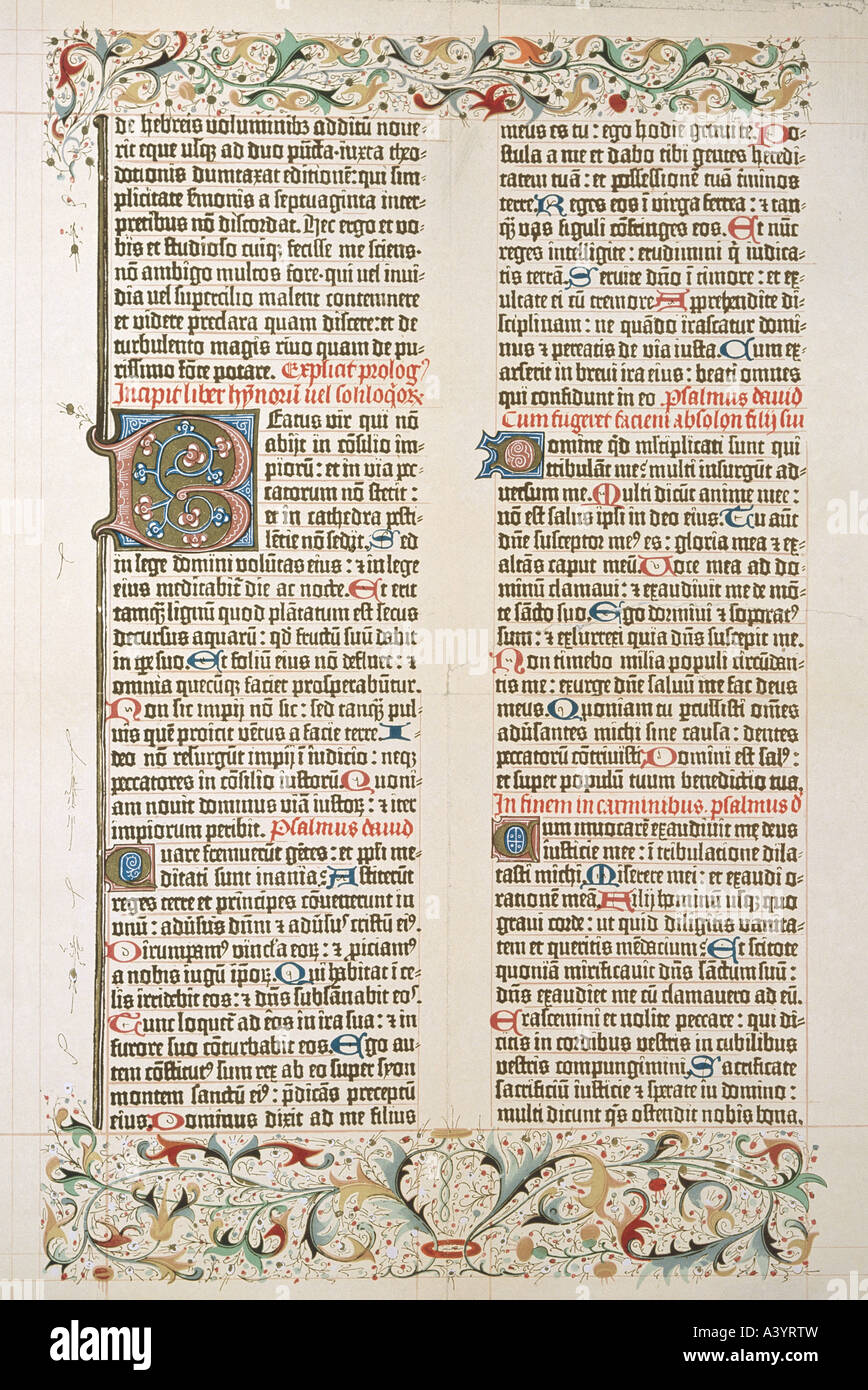 de hebreis voluminibꝫ additū nove-
rit eque usqꝫ ad duo pūcta · iuxta theo-
dotionis dumtaxat editionē : qui sim-
plicitate s̄monis a septuaginta inter-
pretibus nō discordat. Hec ergo et vo-
bis et studioso cuiqꝫ fecisse me sciens ·
nō ambigo multos fore · qui vel invi-
dia vel supercilio malent contemnere
et videre preclara quam discere : et de
turbulento magis rivo quam de pu-
rissimo fōte potare. Explicit prologꝰ
Incipit liber hym̄norū vel soliloqioꝝ
Beatus vir qui nō
abijt in cōsilio im-
piorū : et in via pec-
catorum nō stetit :
et in cathedra pesti-
lētie nō sedit. Sed
in lege domini volūtas eius : et in lege
eius meditabit̄ die ac nocte. Et erit
tamqꝫ lignū quod plātatum est secus
decursus aquarū : qd̄ fructū suū dabit
in tp̄e suo. Et foliū eius nō defluet : ⁊
omnia quecūqꝫ faciet prosperabūtur.
Non sic impij nō sic : sed tanqꝫ pul-
vis quē proicit vētus a facie terre. I-
deo nō resurgūt impij ī iudicio : neqꝫ
peccatores in cōsilio iustorū. Quoni-
am novit dominus viā iustoꝝ : ⁊ iter
impiorum peribit. Psalmus david
Quare fremuerūt gētes : et ppl̄i me-
ditati sunt inania. Astiterūt
reges terre et principes cōvenerunt in
unū : advˢus dn̄m ⁊ adversꝰ cristū eiꝰ.
Dirumpamꝰ vincl̄a eoꝝ : ⁊ piciamꝰ
a nobis iugū ip̄oꝝ. Qui habitat ī ce-
lis irridebit eos : ⁊ dn̄s subsānabit eoˢ.
Tunc loquet̄ ad eos in ira sua : ⁊ in
furore suo cōturbabit eos. Ego au-
tem cōstitutꝰ sum rex ab eo super syon
montem sanctū eiꝰ : p̄dicās preceptū
eius. Dominus dixit ad me filius
meus es tu : ego hodie genui te. Po-
stula a me et dabo tibi gentes heredi-
tatem tuā : et possessionē tuā t̄minos
terre. Reges eos ī virga ferrea : ⁊ tan-
qꝫ vas figuli cōfringes eos. Et nūc
reges intelligite : erudimini q̄ iudica-
tis terrā. Servite dn̄o ī timore : et ex-
ultate ei cū tremore. Apprehendite di-
sciplinam : ne quādo irascatur domi-
nus ⁊ pereatis de via iusta. Cum ex-
arserit in brevi ira eius : beati omnes
qui confidunt in eo. Psalmus david
Cum fugeret faciem absolon filij sui
Domine qd̄ m̄ltiplicati sunt qui
tribulāt me : multi insurgūt ad-
versum me. Multi dicūt anime mee :
nō est salus ipsi in deo eius. Tu aūt
dn̄e susceptor meꝰ es : gloria mea ⁊ ex-
altās caput meū. Voce mea ad do-
minū clamavi : ⁊ exaudivit me de mō-
te sācto suo. Ego dormivi ⁊ soporatꝰ
sum : ⁊ exsurrexi quia dn̄s suscepit me.
Non timebo milia populi circūdan-
tis me : exurge dn̄e salvū me fac deus
meus. Quoniam tu percussisti om̄es
adv̄santes michi sine causa : dentes
peccatorū cōtrivisti. Domini est salꝰ :
et super populū tuum benedictio tua.
In finem in carminibus. psalmus d̄
Cum invocarē exaudivit me deus
iusticie mee : ī tribulatione dila-
tasti michi. Miserere mei : et exaudi o-
rationē meā. Filij hominū usqꝫ quo
gravi corde : ut quid diligitis vanita-
tem et queritis mēdacium. Et scitote
quoniā mirificavit dn̄s sāctum suū :
dn̄s exaudiet me cū clamavero ad eū.
Irascemini et nolite peccare : qui di-
citis in cordibus vestris in cubilibus
vestris compungimini. Sacrificate
sacrificiū iusticie ⁊ sperate in domino :
multi dicunt q̄s ostendit nobis bona.
alamy
alamy
Image ID: A3YRTW
www.alamy.com